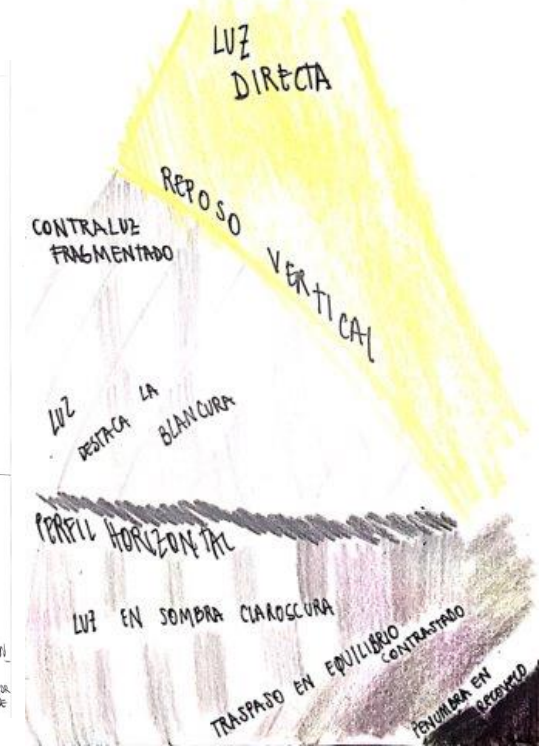 LUZ
DIRECTA
REPOSO VERTICAL
CONTRALUZ
FRAGMENTADO
LUZ DESTACA LA BLANCURA
PERFIL HORIZONTAL
LUZ EN SOMBRA CLAROSCURA
TRASPASO EN EQUILIBRIO
CONTRASTADO
PENUMBRA EN
RECOVECO